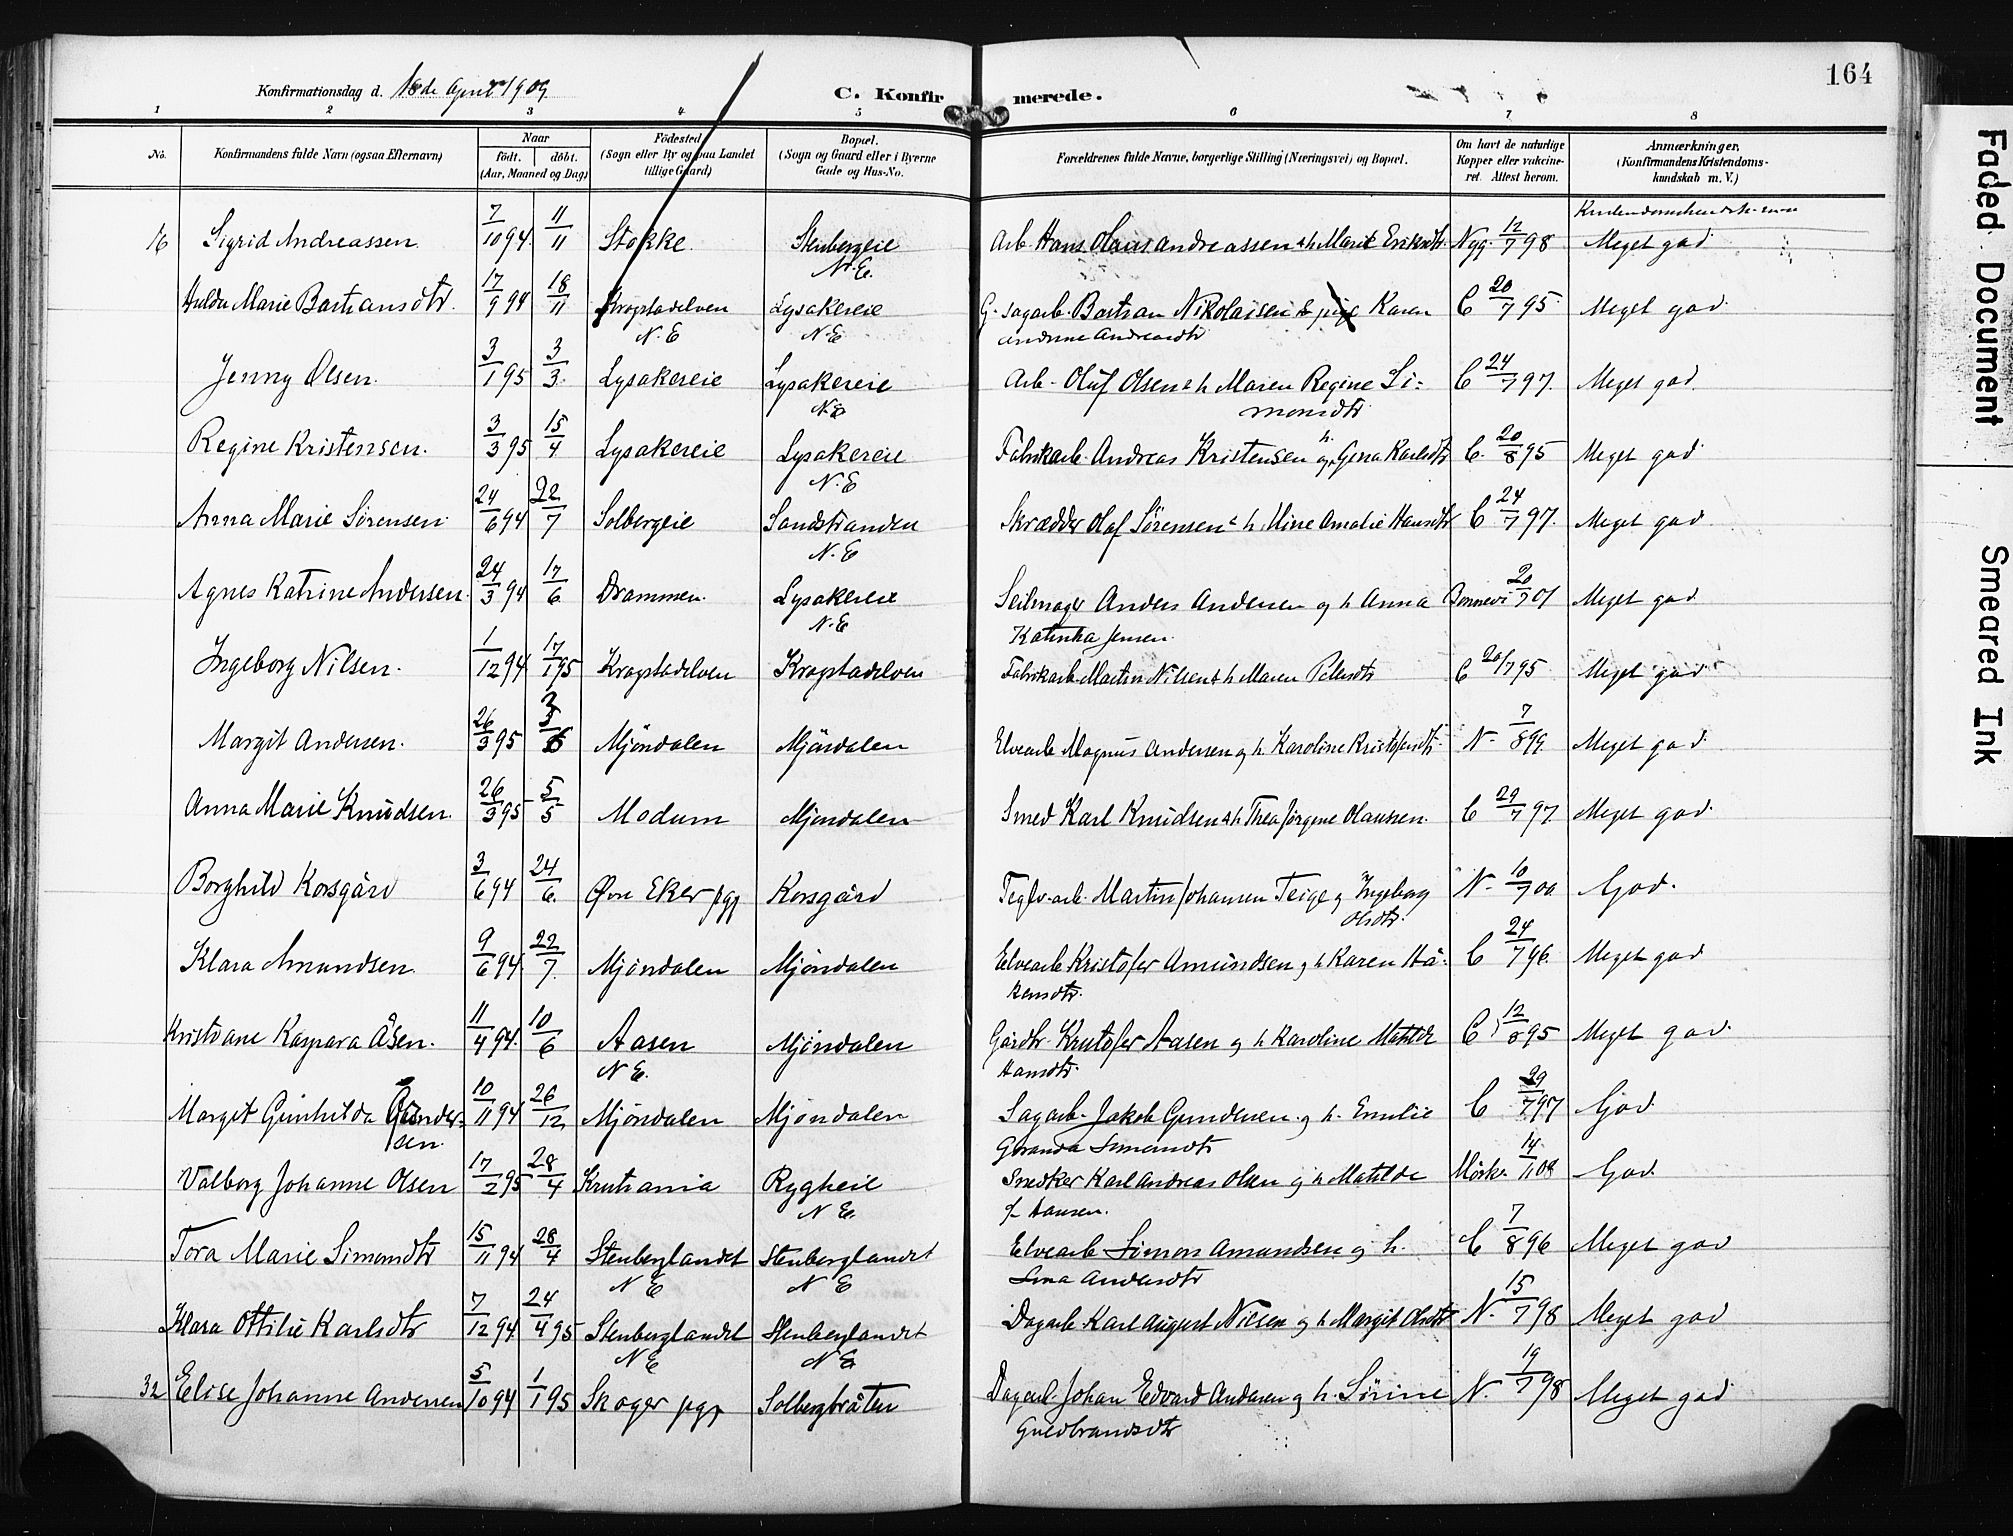 164
Konfirmationsdag d. 18de April 1909
C. Konfirmerede.
1 2 3 4 5 6 7 8
No. Konfirmandens fulde Navn (ogsaa Efternavn) Naar født. døbt. (Aar, Maaned og Dag) Fødested (Sogn eller By og paa Landet tillige Gaard) Bopæl. (Sogn og Gaard eller i Byerne Gade og Hus-No. Forældrenes fulde Navne, borgerlige Stilling (Næringsvei) og Bopæl. Om havt de naturlige Kopper eller vakcineret. Attest herom. Anmærkninger. (Konfirmandens Kristendomskundskab m. V.)
16 Sigrid Andreassen 7/10 94 11/11 Stokke Stenbergeie N.E. Arb. Hans Olaus Andreassen & h Marit Eriksdtr Nyg. 12/7 98 Meget god
Hulda Marie Bastiansdtr. 17/9 94 18/11 Krogstadelven N.E Lysakereie N.E G. sagarb. Bastian Nikolaisen & pige Karen Andrine Andreasdtr C 20/7 95 Meget god
Jenny Olsen 3/1 95 3/3 Lysakereie Lysakereie N.E Arb. Oluf Olsen & h Maren Regine Simonsdtr C 24/7 97 Meget god
Regine Kristensen. 3/3 95 15/4 Lysakereie Lysakereie N.E Fabrikarb. Andreas Kristensen og h. Gina Karlsdtr C. 20/8 95 Meget god
Anna Marie Sørensen 24/6 94 22/7 Solbergeie Sandstranden N.E Skrædder Olaf Sørensen & h. Aline Amalie Hansdtr C 24/7 97. Meget god
Agnes Katrine Andersen 24/3 94 17/6 Drammen Lysakereie N.E Seilmager Anders Andersen og h Anna Katinka Jensen. Bonnevi 20/7 01 Meget god
Ingeborg Nilsen. 1/12 94 17/1 95 Krogstadelven Krogstadelven Fabrikarb Martin Nilsen & h Maren Pedersdtr C 20/7 95 Meget god
Margit Andersen. 26/3 95 3/6 Mjöndalen Mjöndalen Elvearb Magnus Andersen og h Karoline Kristofersdtr N. 7/8 99 Meget god
Anna Marie Knudsen 26/3 95 5/5 Modum Mjöndalen Smed Karl Knudsen & h Thea Jörgine Olaussen. C 29/7 97 Meget god
Borghild Korsgård 3/6 94 24/6. Øvre Eker pgj Korsgård Teglv. arb. Martin Johansen Teige og Ingeborg Olsdtr. N. 10/7 00 God.
Klara Amundsen 9/6 94 22/7. Mjöndalen Mjöndalen Elvearb Kristofer Amundsen og h Karen Håkensdtr. C 24/7 96. Meget god
Kristiane Kaspara Åsen. 11/4 94. 10/6 Aasen N E. Mjöndalen Gårdbr. Kristofer Aasen og h Karoline Matilde Hansdtr. C 12/8 95 Meget god.
Margit Gunhilda Gundersen. 10/11 94 26/12 Mjöndalen Mjöndalen Sagarb. Jakob Gundersen og h. Emilie Geranda Simensdtr C 29/7 97 God.
Valborg Johanne Olsen 17/2 95 28/4 Kristiania Rygheie N E. Snedker Karl Andreas Olsen og h Matilde f. Hansen. Mørk. 14/11 08 God.
Tora Marie Simonsdtr 15/11 94 28/4 Stenberglandet N E Stenberglandet N E Elvearb Simon Amundsen og h. Sina Andersdtr C 7/8 96 Meget god
Klara Ottilie Karlsdtr 7/12 94 24/4 95 Stenberglandet N E Stenberglandet N E Dagarb Karl August Nilsen og h Margit Olsdtr N. 15/7 98 Meget god
32 Elise Johanne Andersen 5/10 94 1/1 95 Skoger pgj Solbergbråten Dagarb. Johan Edvard Andersen og h. Sörine Guldbrandsdtr N. 19/7 98 Meget god
Faded Document
Smeared Ink